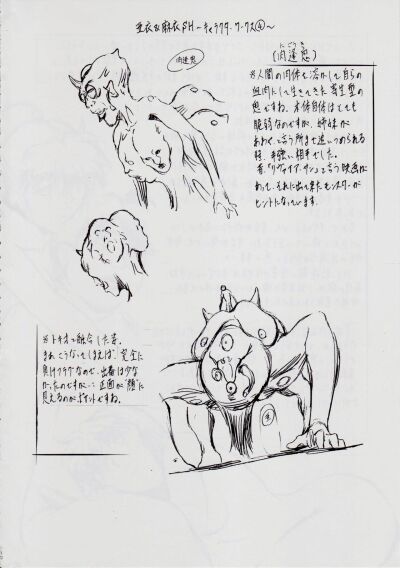 亜衣&麻衣βH～キャラクターワークス④～
肉蓬悪
にくほうき
(肉蓬悪)
※人間の肉体を溶かして自らの
血肉にして生きてきた寄生型の
悪ですね。本体自体はとても
脆弱なのですが、姉妹が
あわやと言う所まで追いつめられる
程、手強い相手でした。
昔、「リヴァイアサン」と言う映画が
あって、それに出て来たモンスターが
ヒントになっています。
※トキオと融合した姿。
まぁこうなってしまえば、完全に
負けフラグなので、出番は少な
かったのですが…正面が“顔”に
見えるのがポイントですね。